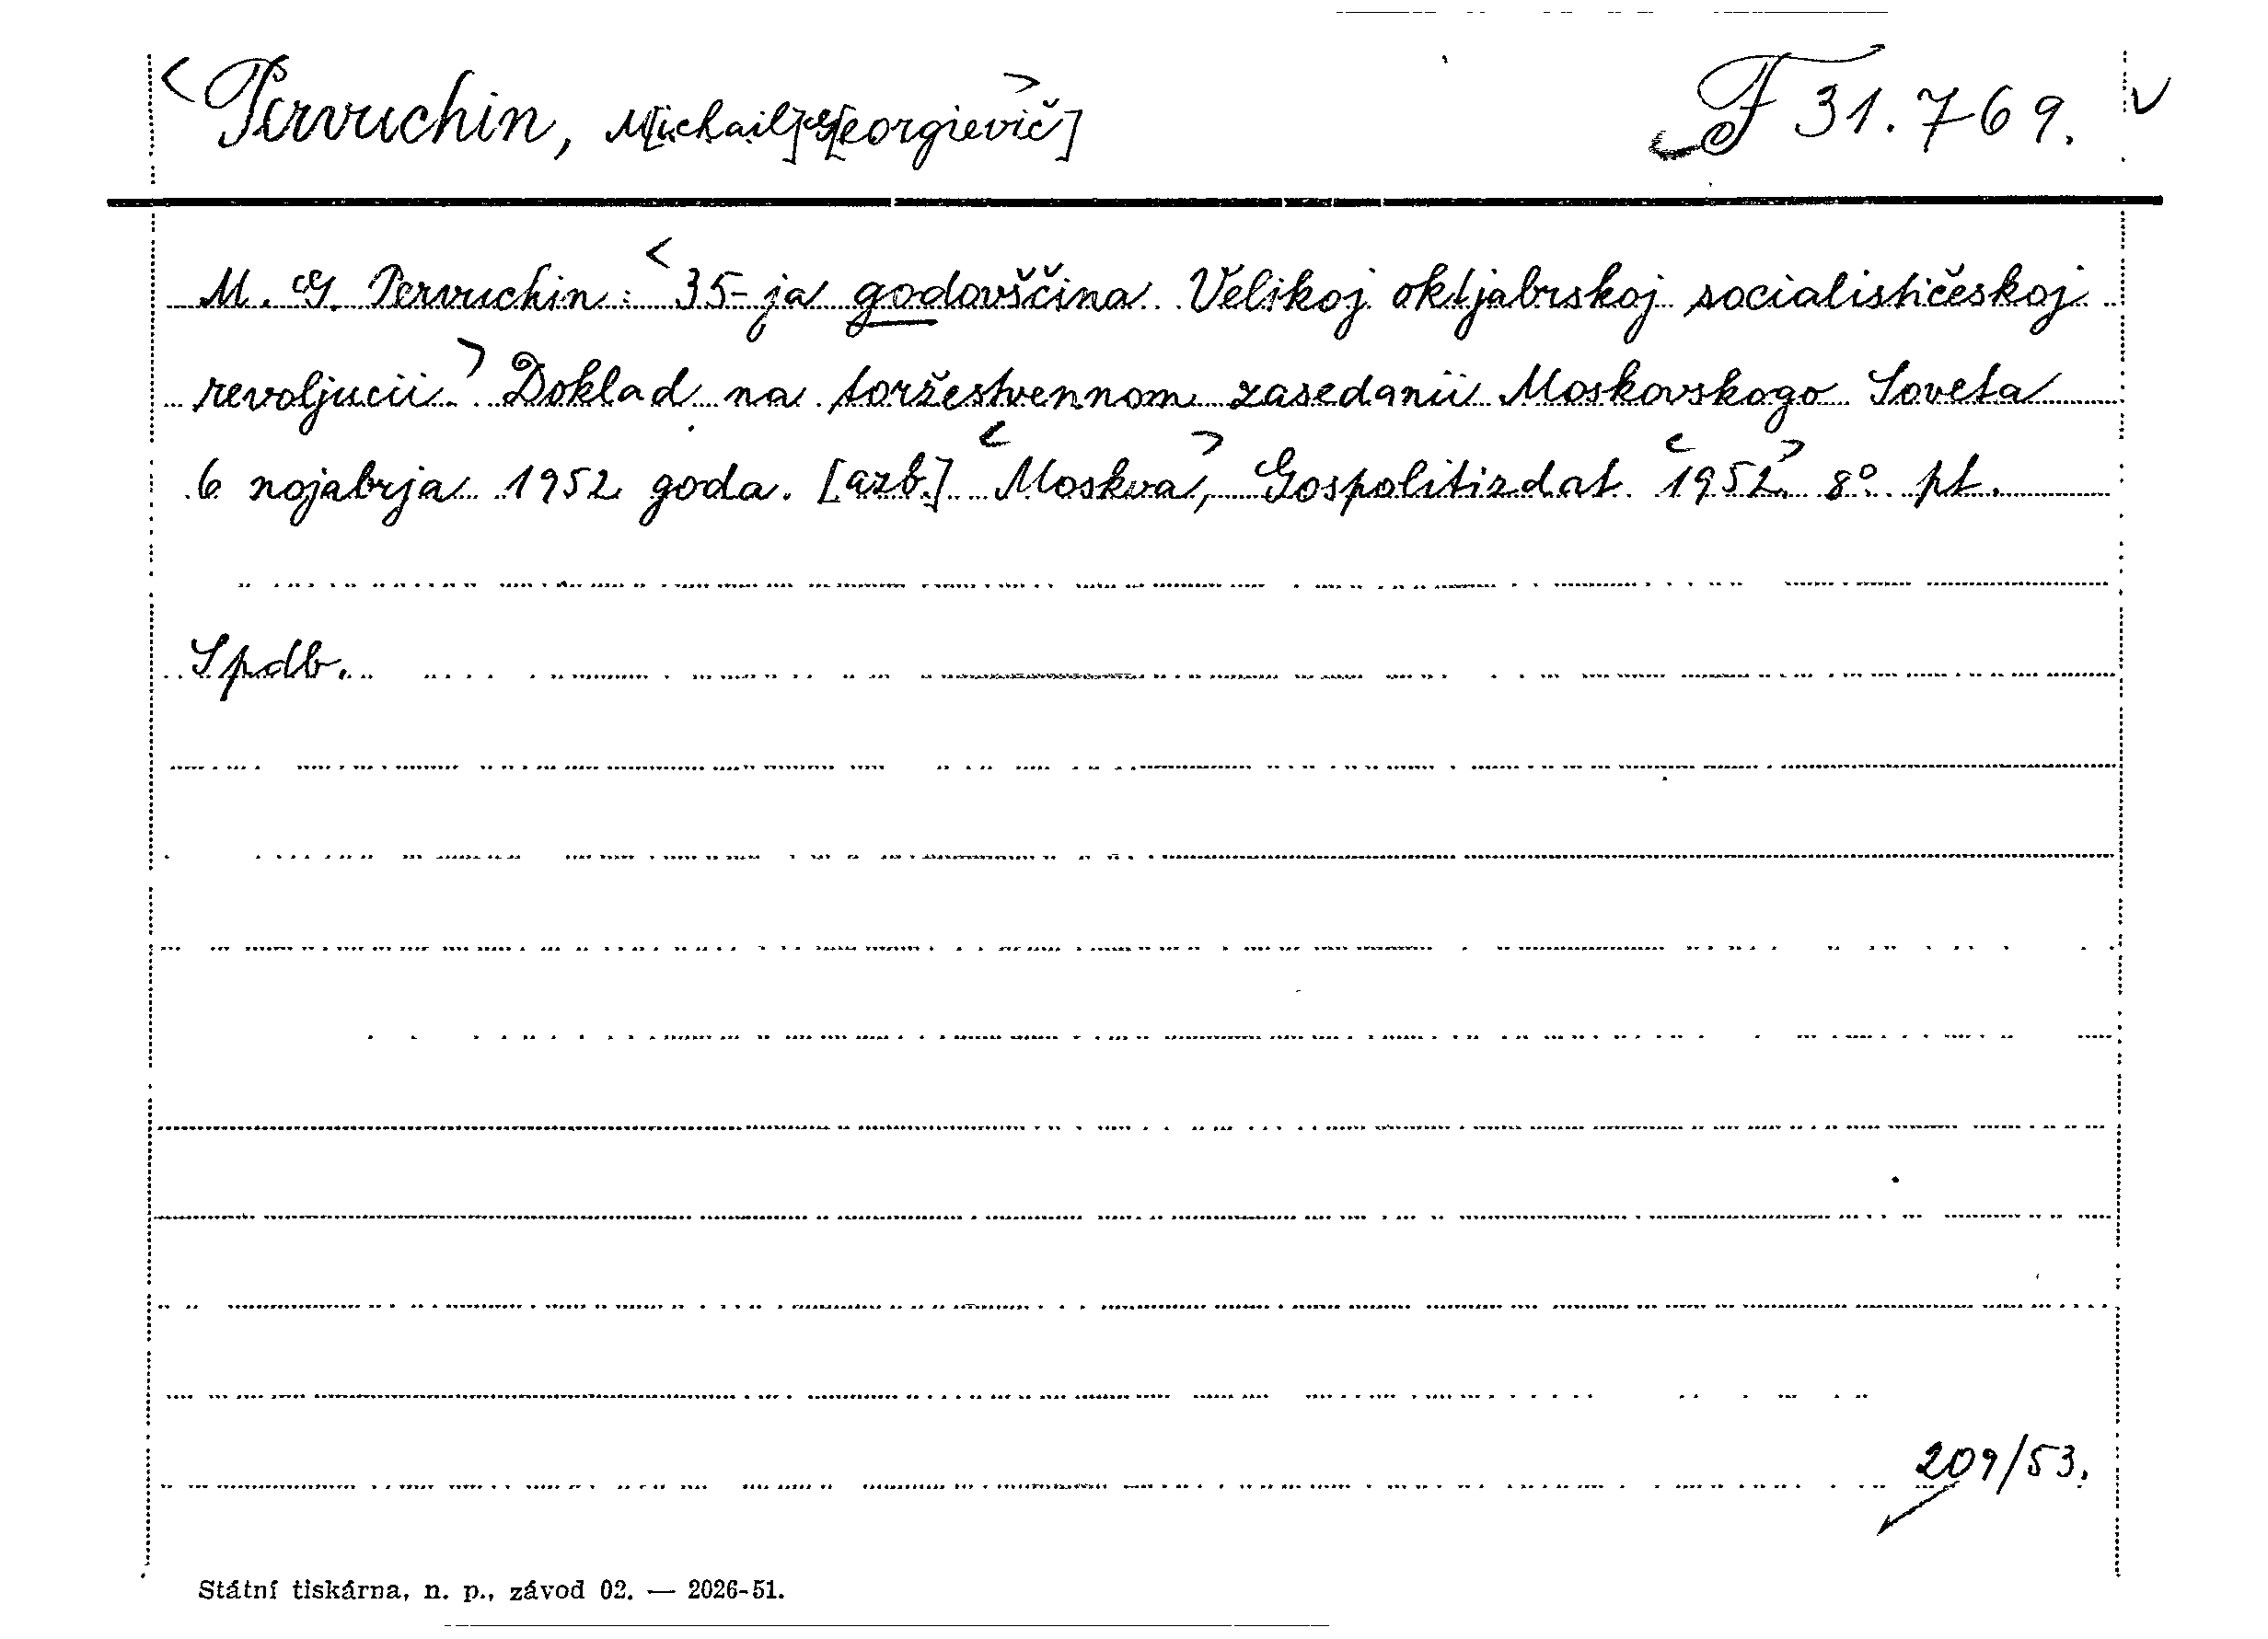 <Pervuchin, M[ichail] G[eorgievič]> F 31.769. v
M. G. Pervuchin: <35-ja godovščina Velikoj oktjabrskoj socialističeskoj
revoljucii.> Doklad na toržestvennom zasedanii Moskovskogo Soveta
6 nojabrja 1952 goda. [azb.] <Moskva>, Gospolitizdat <1952.> 8° pt.
Spdb.
209/53.
Státní tiskárna, n. p., závod 02. — 2026-51.